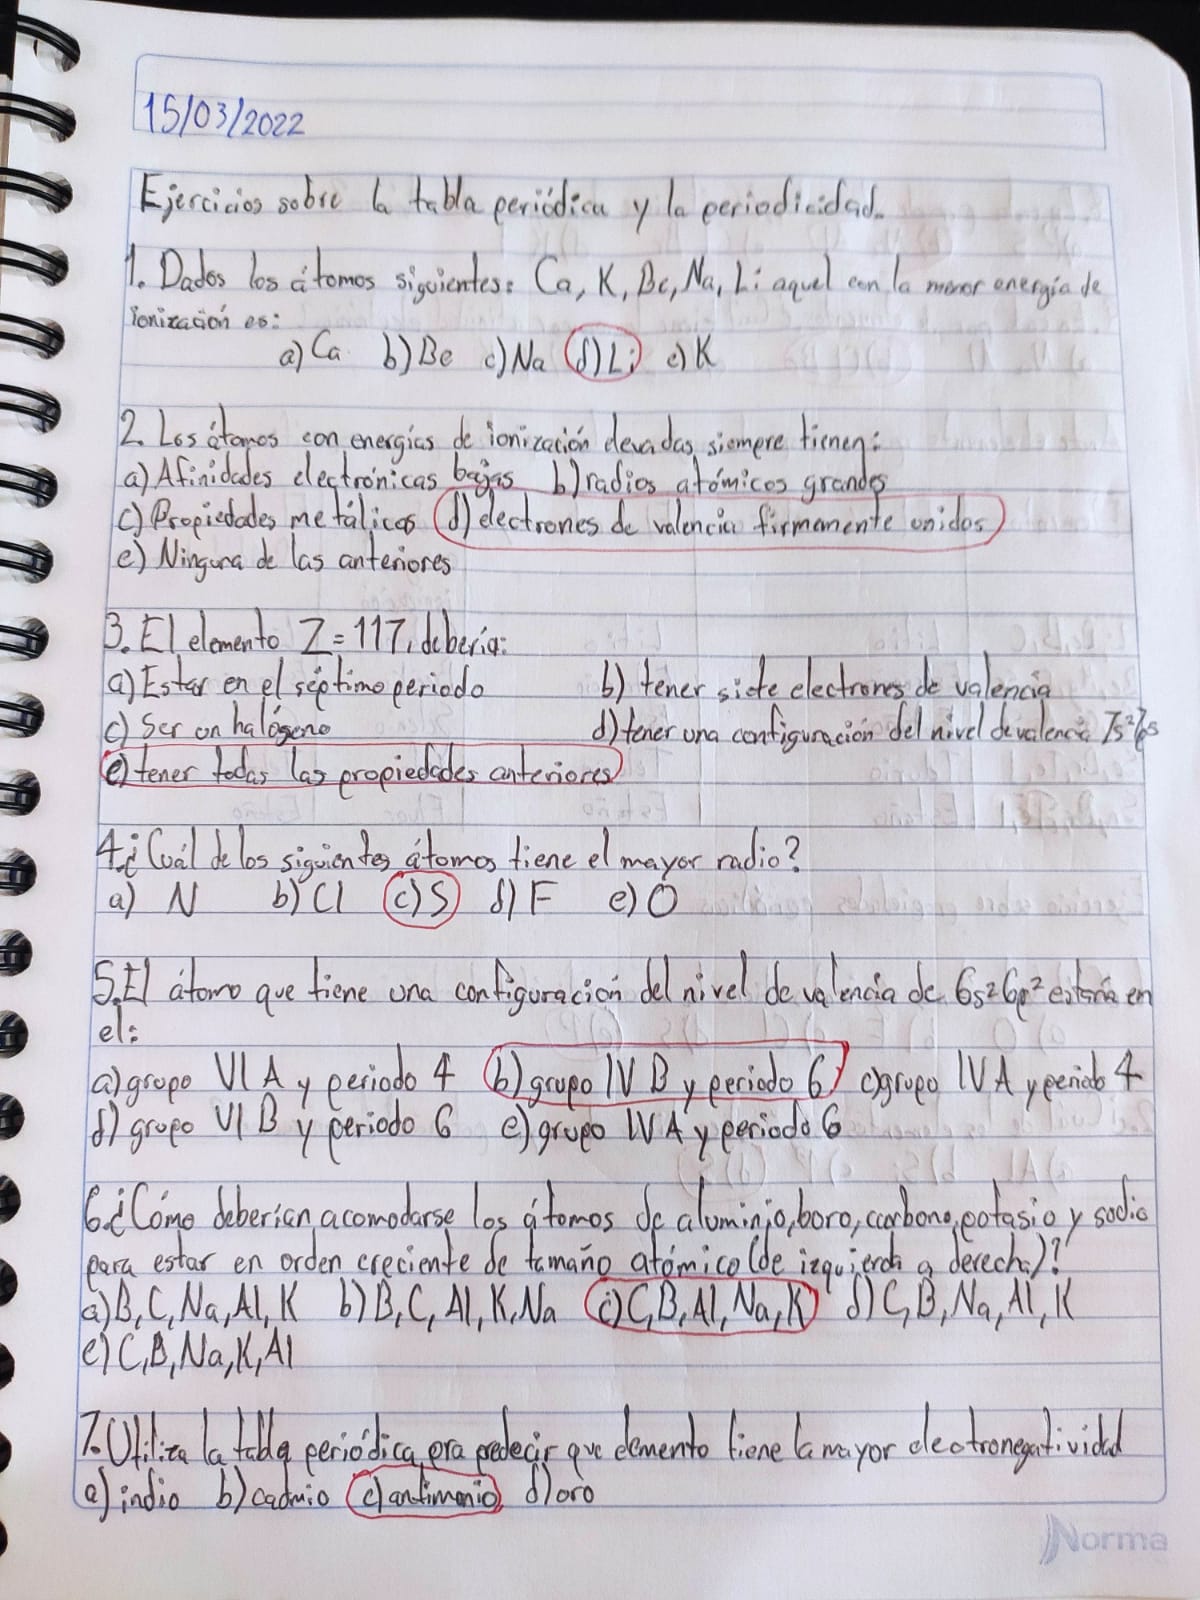 15/03/2022
Ejercicios sobre la tabla periódica y la periodicidad.
1. Dados los átomos siguientes: Ca, K, Be, Na, Li aquel con la menor energía de
ionización es:
a) Ca b) Be c) Na d) Li e) K
2. Los átomos con energías de ionización elevadas siempre tienen:
a) Afinidades electrónicas bajas b) radios atómicos grandes
c) Propiedades metálicas d) electrones de valencia firmemente unidos
e) Ninguna de las anteriores
3. El elemento Z=117, debería:
a) Estar en el séptimo periodo b) tener siete electrones de valencia
c) Ser un halógeno d) tener una configuración del nivel de valencia 7s²7p⁵
e) tener todas las propiedades anteriores
4. ¿Cuál de los siguientes átomos tiene el mayor radio?
a) N b) Cl c) S d) F e) O
5. El átomo que tiene una configuración del nivel de valencia de 6s²6p² estaría en
el:
a) grupo VI A y periodo 4 b) grupo IV B y periodo 6 c) grupo IV A y periodo 4
d) grupo VI B y periodo 6 e) grupo IV A y periodo 6
6. ¿Cómo deberían acomodarse los átomos de aluminio, boro, carbono, potasio y sodio
para estar en orden creciente de tamaño atómico (de izquierda a derecha)?
a) B, C, Na, Al, K b) B, C, Al, K, Na c) C, B, Al, Na, K d) C, B, Na, Al, K
e) C, B, Na, K, Al
7. Utiliza la tabla periódica para predecir que elemento tiene la mayor electronegatividad
a) indio b) cadmio c) antimonio d) oro
Norma